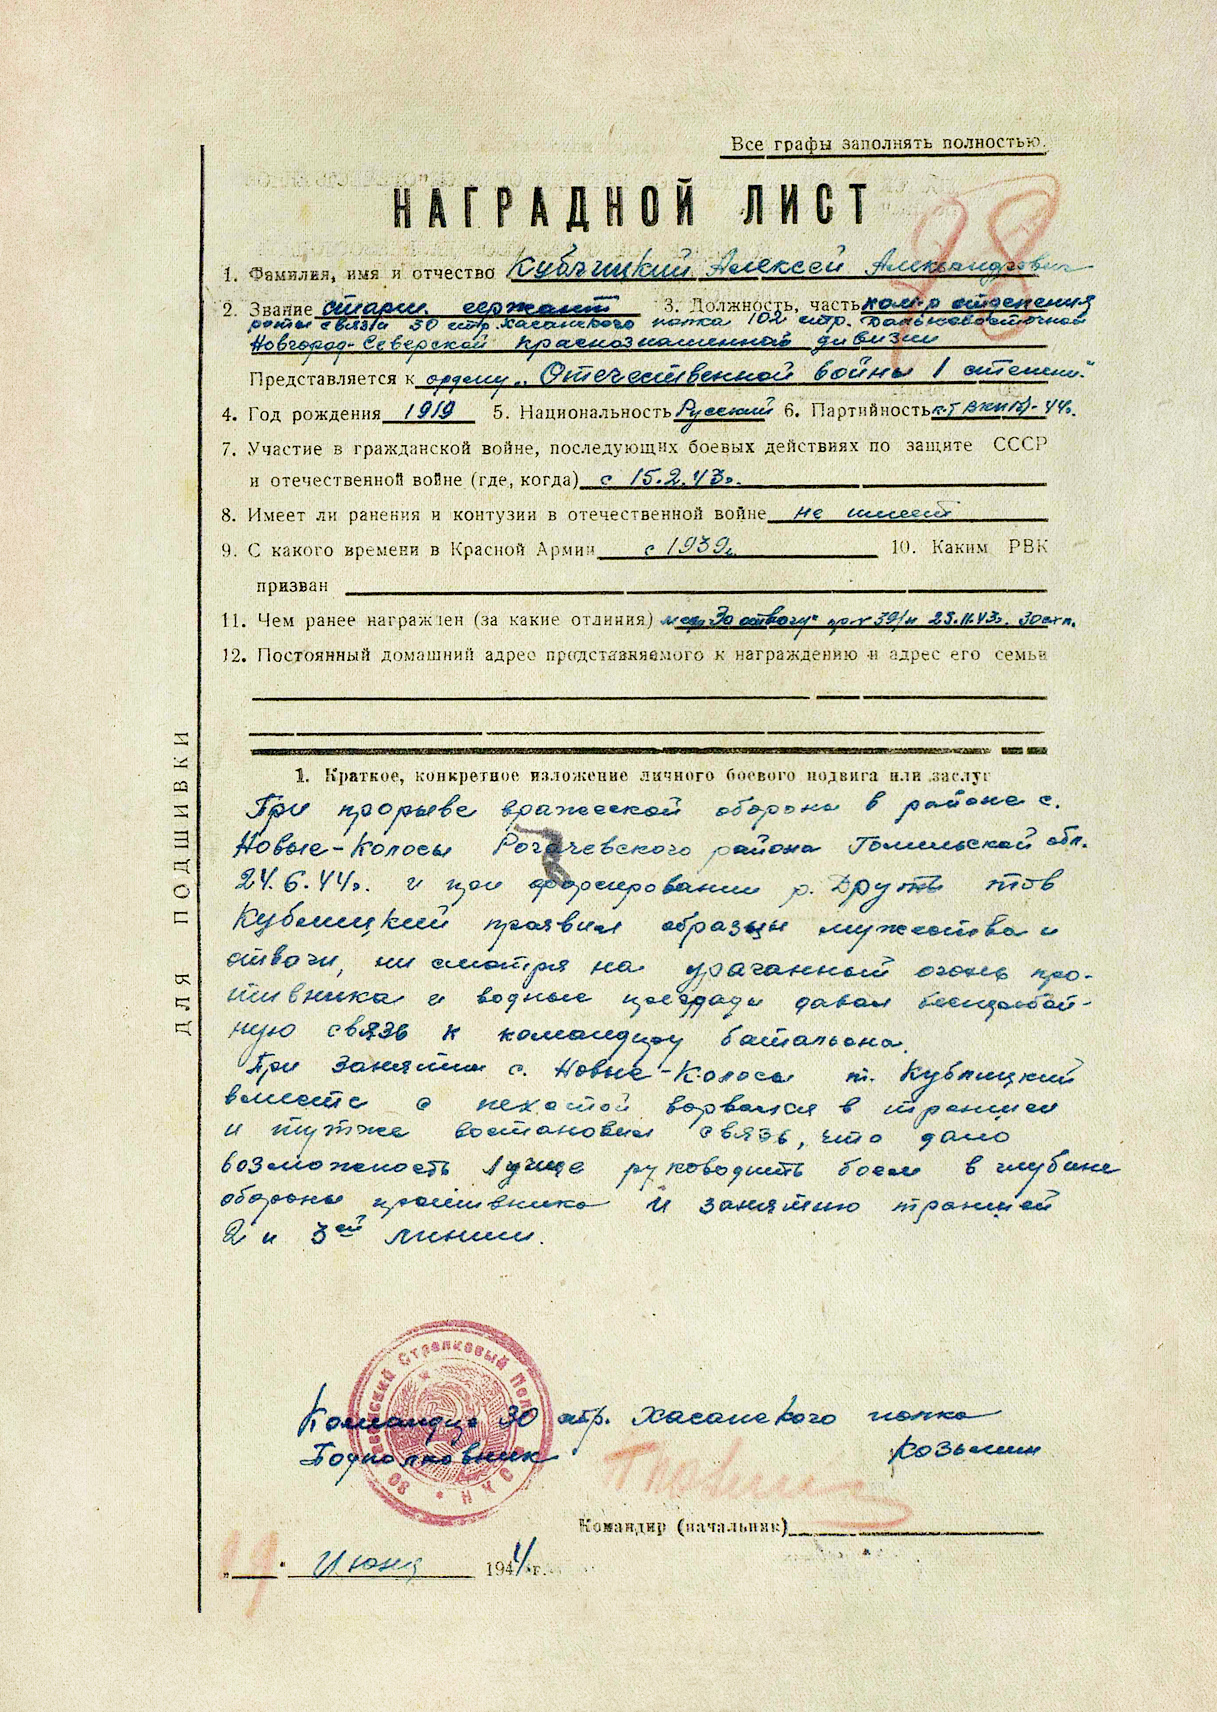 Все графы заполнять полностью.
НАГРАДНОЙ ЛИСТ
1. Фамилия, имя и отчество Кублицкий Алексей Александрович
2. Звание старш. сержант 3. Должность, часть ком-р отделения
роты связи 30 стр. Хасанского полка 102 стр. Дальневосточной
Новгород-Северской Краснознаменной дивизии
Представляется к ордену „Отечественной войны 1 степени“
4. Год рождения 1919 5. Национальность Русский 6. Партийность к-т ВКП(б)-44г.
7. Участие в гражданской войне, последующих боевых действиях по защите СССР
и отечественной войне (где, когда) с 15.2.43г.
8. Имеет ли ранения и контузии в отечественной войне не имеет
9. С какого времени в Красной Армии с 1939г. 10. Каким РВК
призван
11. Чем ранее награжден (за какие отличия) мед. „За отвагу“ пр-к 39/н 23.11.43г. 30 сп.
12. Постоянный домашний адрес представляемого к награждению и адрес его семьи
ДЛЯ ПОДШИВКИ
1. Краткое, конкретное изложение личного боевого подвига или заслуг
При прорыве вражеской обороны в районе с.
Новые-Колосы Рогачевского района Гомильской обл.
24.6.44г. и при форсировании р. Друть тов
Кублицкий проявил образцы мужества и
отваги, ни смотря на ураганный огонь про-
тивника и водные преграды давал бесперебой-
ную связь к командиру батальона.
При занятии с. Новые-Колоса т. Кублицкий
вместе с пехотой ворвался в траншеи
и тутже востановил связь, что дало
возможность лучше руководить боем в глубине
обороны противника и занятию траншей
2 и 3ей линии.
Командир 30 стр. Хасанского полка
Подполковник Козьмин
Командир (начальник)
„19“ Июня 1944 г.
30 Хасанский Стрелковый Полк